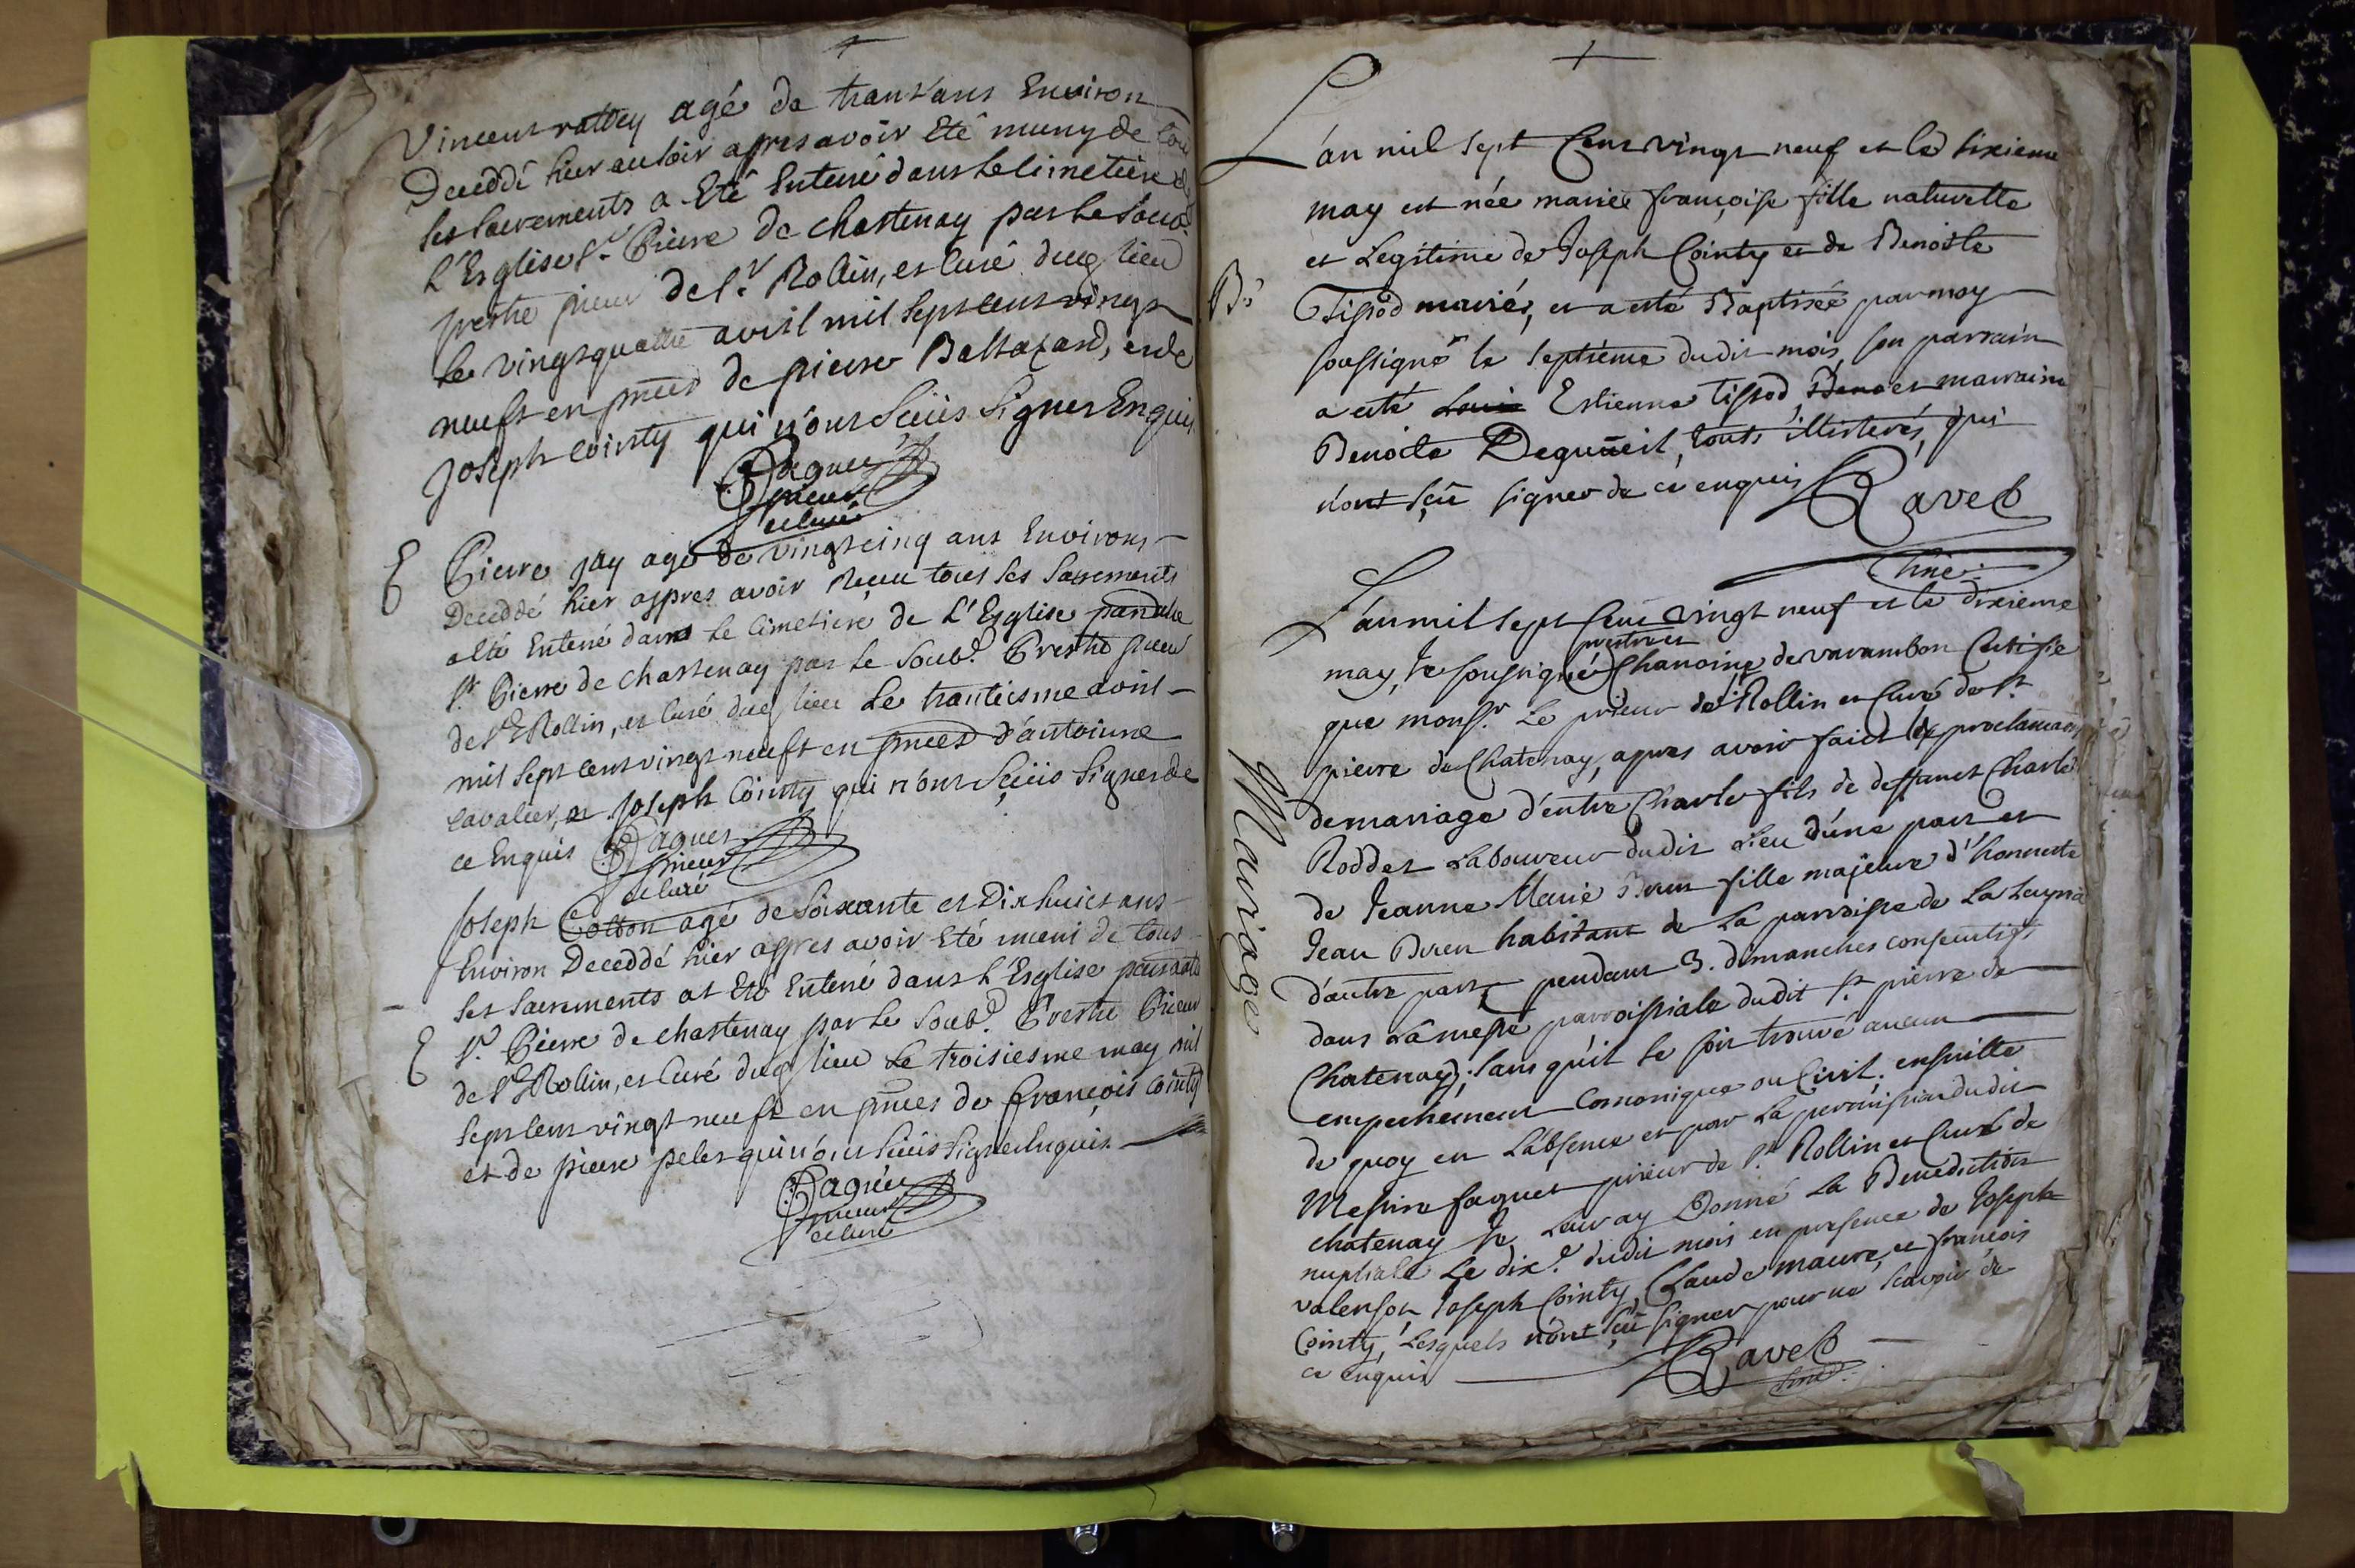 Vincent rattey agé de trant'ans Environ
Deceddé hier au soir apres avoir Eté muny de
ses sacrements a Eté Enterré dans le cimetiere
L'Esglise St. Pierre de chastenay par le soub.
prestre prieur de St. Rollin, et curé dud lieu
le vingtquattre avril mil sept cent vingt
neuft en pnces de pierre Baltazard, et de
Joseph cointy qui n'ont sceüs signer Enquis
prieur
et curé
E Pierre jay agé de vingtcinq ans Environs
Deceddé hier appres avoir Reçeu tous ses sacrements
a Eté Enterré dans le cimetiere de L'Esglise
St. Pierre de chastenay par le soub.d Prestre prieur
de St Rollin, et curé dud lieu Le trantiesme avril
mil sept cent vingt neuft en pnces d'antoinne
cavalier, et Joseph Cointy qui n'ont Sçeüs signer de
ce Enquis
prieur
et curé
Joseph Colbon agé de soixante et Dix huict ans
Environ Deceddé hier appres avoir Eté muni de tous
ses sacrements at Eté Enterré dans L'Esglise
E St. Pierre de chastenay par le soub.d Prestre Prieur
de St Rollin, et Curé dud lieu Le troisiesme may mil
sept cent vingt neuft en pnces de françois Cointy
et de pierre peler qui n'ont sceüs signer Enquis
prieur
et curé
L'an mil sept Cent vingt neuf et le sixieme
may est née mariee françoise fille naturelle
et Legitime de Joseph Cointy et de Benoiste
B. Tissod mariés, et a esté Baptisée par moy
soussigné le septiéme dudit mois, son parrain
a esté Estienne Tissod, et marraine
Benoite, touts illiterés, qui
n'ont sçu signer de ce enquis Ravet
L'an mil sept Cent vingt neuf et le dixieme
prestre et
may, Je soussigné Chanoine de varambon Certifie
que monsr. Le prieur de St Rollin et Curé de St.
pierre de Chatenay, apres avoir faict les proclamaons
de mariage d'entre Charle fils de deffunct Charle
Mariage
Roddet Laboureur dudit Lieu d'une part et
de Jeanne Marie Brun fille majeure d'honneste
Jean Brun habitant de La parroisse de La
d'autre part pendant 3. dimanches consecutifs
dans La messe parroissiale dudit St. pierre de
Chatenay; sans qu'il se soit trouvé aucun
empechement Canonique ou Civil; ensuitte
de quoy en L'absence et par La permission dudit
Messire faguet prieur de St. Rollin et Curé de
chatenay Je Leur ay Donné La Benediction
nuptiale Le dix.e dudit mois en presence de Joseph
valenson, Joseph Cointy, Claude maure, et françois
Cointy, Lesquels n'ont sçu signer pour ne scavoir de
ce enquis Ravet